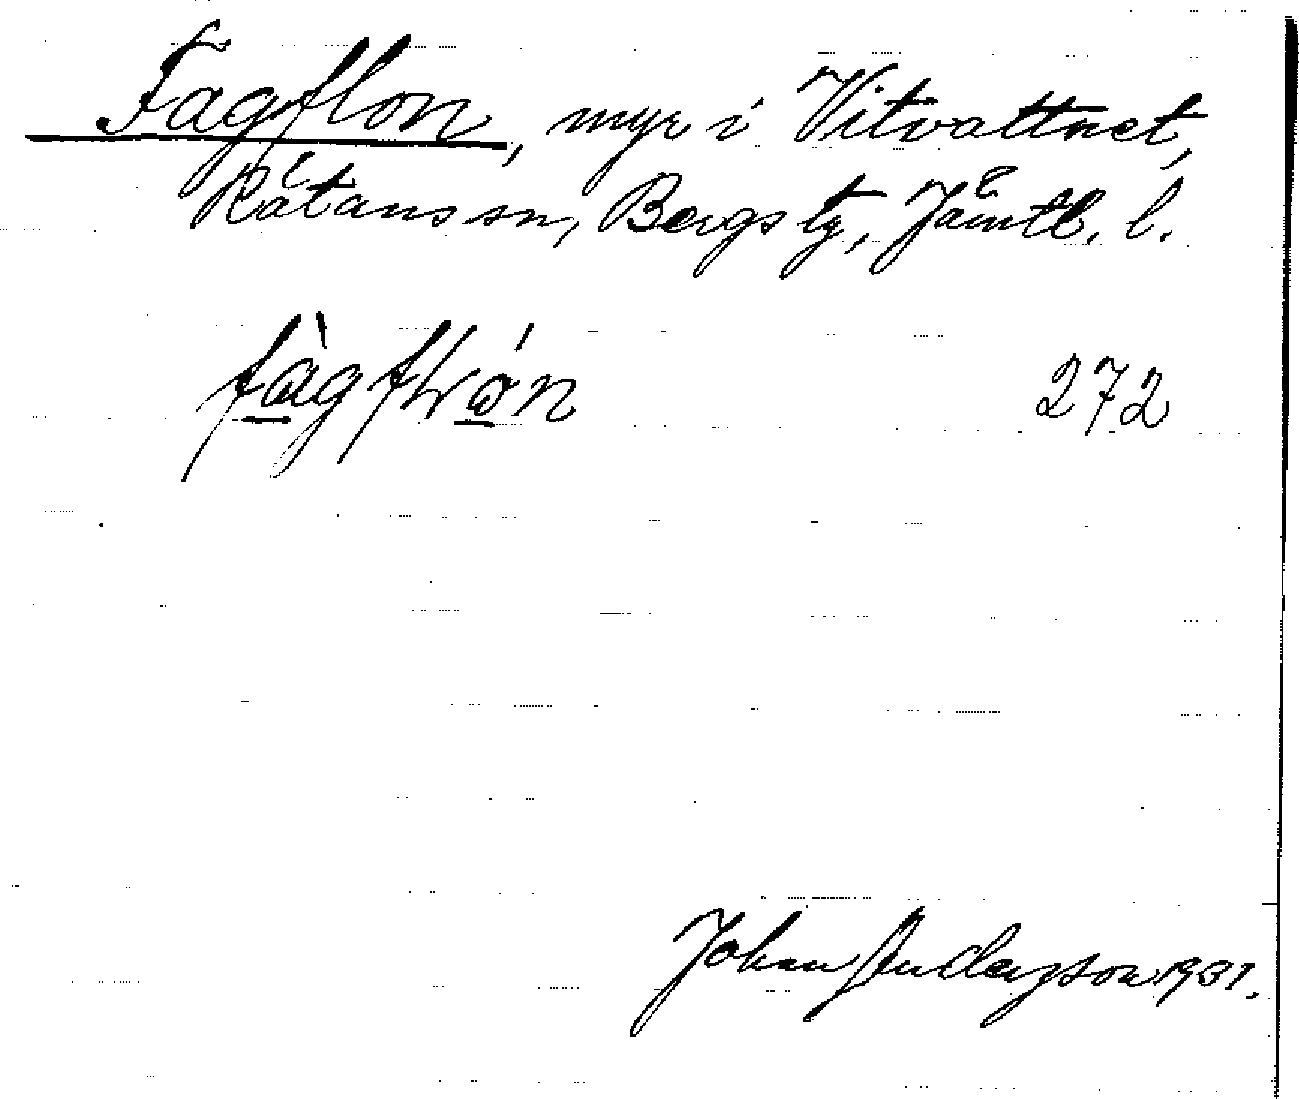 Fagflon, myr i Vitvattnet,
Rätans sn, Bergs tg, Jämtl. l.
fàgflón 272
Johan Anderzson 1931.